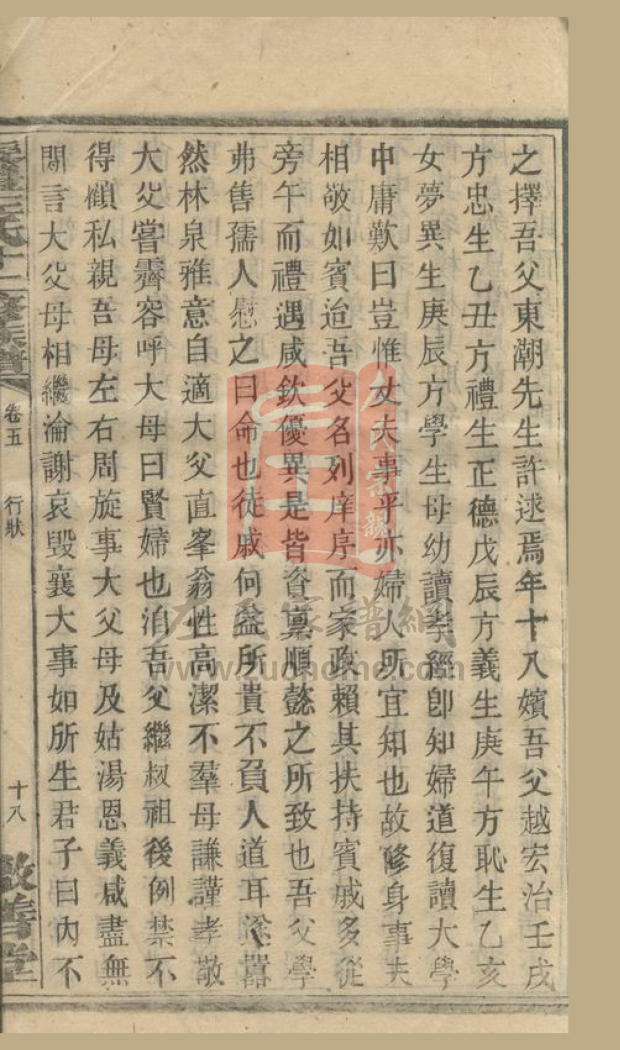 之擇吾父東潮先生許逑焉年十八嬪吾父越宏治壬戌
方忠生乙丑方禮生正德戊辰方義生庚午方恥生乙亥
女夢異生庚辰方學生母幼讀孝經卽知婦道復讀大學
中庸歎曰豈惟丈夫事乎亦婦人所宜知也故修身事夫
相敬如賓迨吾父名列庠序而家政賴其扶持賓戚多從
旁午而禮遇咸欽優異是皆資稟順懿之所致也吾父學
弗售孺人慰之曰命也徒戚何益所貴不負人道耳遂囂
然林泉雅意自適大父直峯翁性高潔不羣母謙謹孝敬
大父嘗霽容呼大母曰賢婦也洎吾父繼叔祖後例禁不
得顧私親吾母左右周旋事大父母及姑湯恩義咸盡無
間言大父母相繼淪謝哀毀襄大事如所生君子曰內不
王氏十二修族譜 卷五 行狀 十八 敬善堂
www.zuohome.com